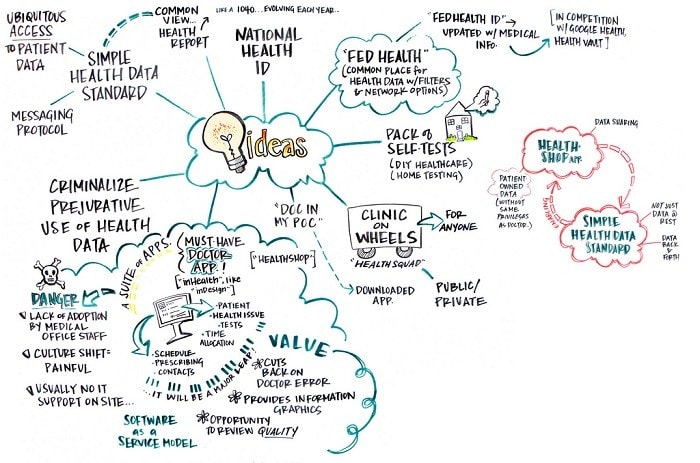 UBIQUITOUS
ACCESS
TO PATIENT
DATA
SIMPLE
HEALTH DATA
STANDARD
MESSAGING
PROTOCOL
COMMON
VIEW...
HEALTH
REPORT
LIKE A 1040...EVOLVING EACH YEAR..
NATIONAL
HEALTH
ID
"FED HEALTH"
(COMMON PLACE for
HEALTH DATA w/FILTERS
& NETWORK OPTIONS)
"FED HEALTH ID"
UPDATED w/ MEDICAL
INFO.
[IN COMPETITION
w/ GOOGLE HEALTH,
HEALTH VAULT]
ideas
PACK of
SELF-TESTS
(DIY HEALTHCARE)
(HOME TESTING)
CRIMINALIZE
PREJURATIVE
USE of HEALTH
DATA
"DOC IN
MY POC"
DOWNLOADED
APP.
CLINIC
ON
WHEELS
"HEALTH SQUAD"
FOR
ANYONE
PUBLIC/
PRIVATE
DATA SHARING
HEALTH
SHOP APP
PATIENT
OWNED
DATA
(WITHOUT
SAME
PRIVILEGES
AS DOCTOR)
ENABLING
SIMPLE
HEALTH DATA
STANDARD
NOT JUST
DATA @
REST
DATA
BACK &
FORTH
A SUITE of APPS.
(MUST HAVE
DOCTOR
APP!
["inHealth", like
"inDesign"]
["HEALTHSHOP"]
• PATIENT
• HEALTH ISSUE
• TESTS
• TIME
ALLOCATION
• SCHEDULE
• PRESCRIBING
• CONTACTS
...IT WILL BE A MAJOR LEAP!
DANGER
LACK of ADOPTION
BY MEDICAL
OFFICE STAFF
CULTURE SHIFT=
PAINFUL
USUALLY NO IT
SUPPORT ON SITE...
VALUE
CUTS
BACK ON
DOCTOR ERROR
PROVIDES INFORMATION
GRAPHICS
OPPORTUNITY
TO REVIEW QUALITY
SOFTWARE
as a
SERVICE MODEL